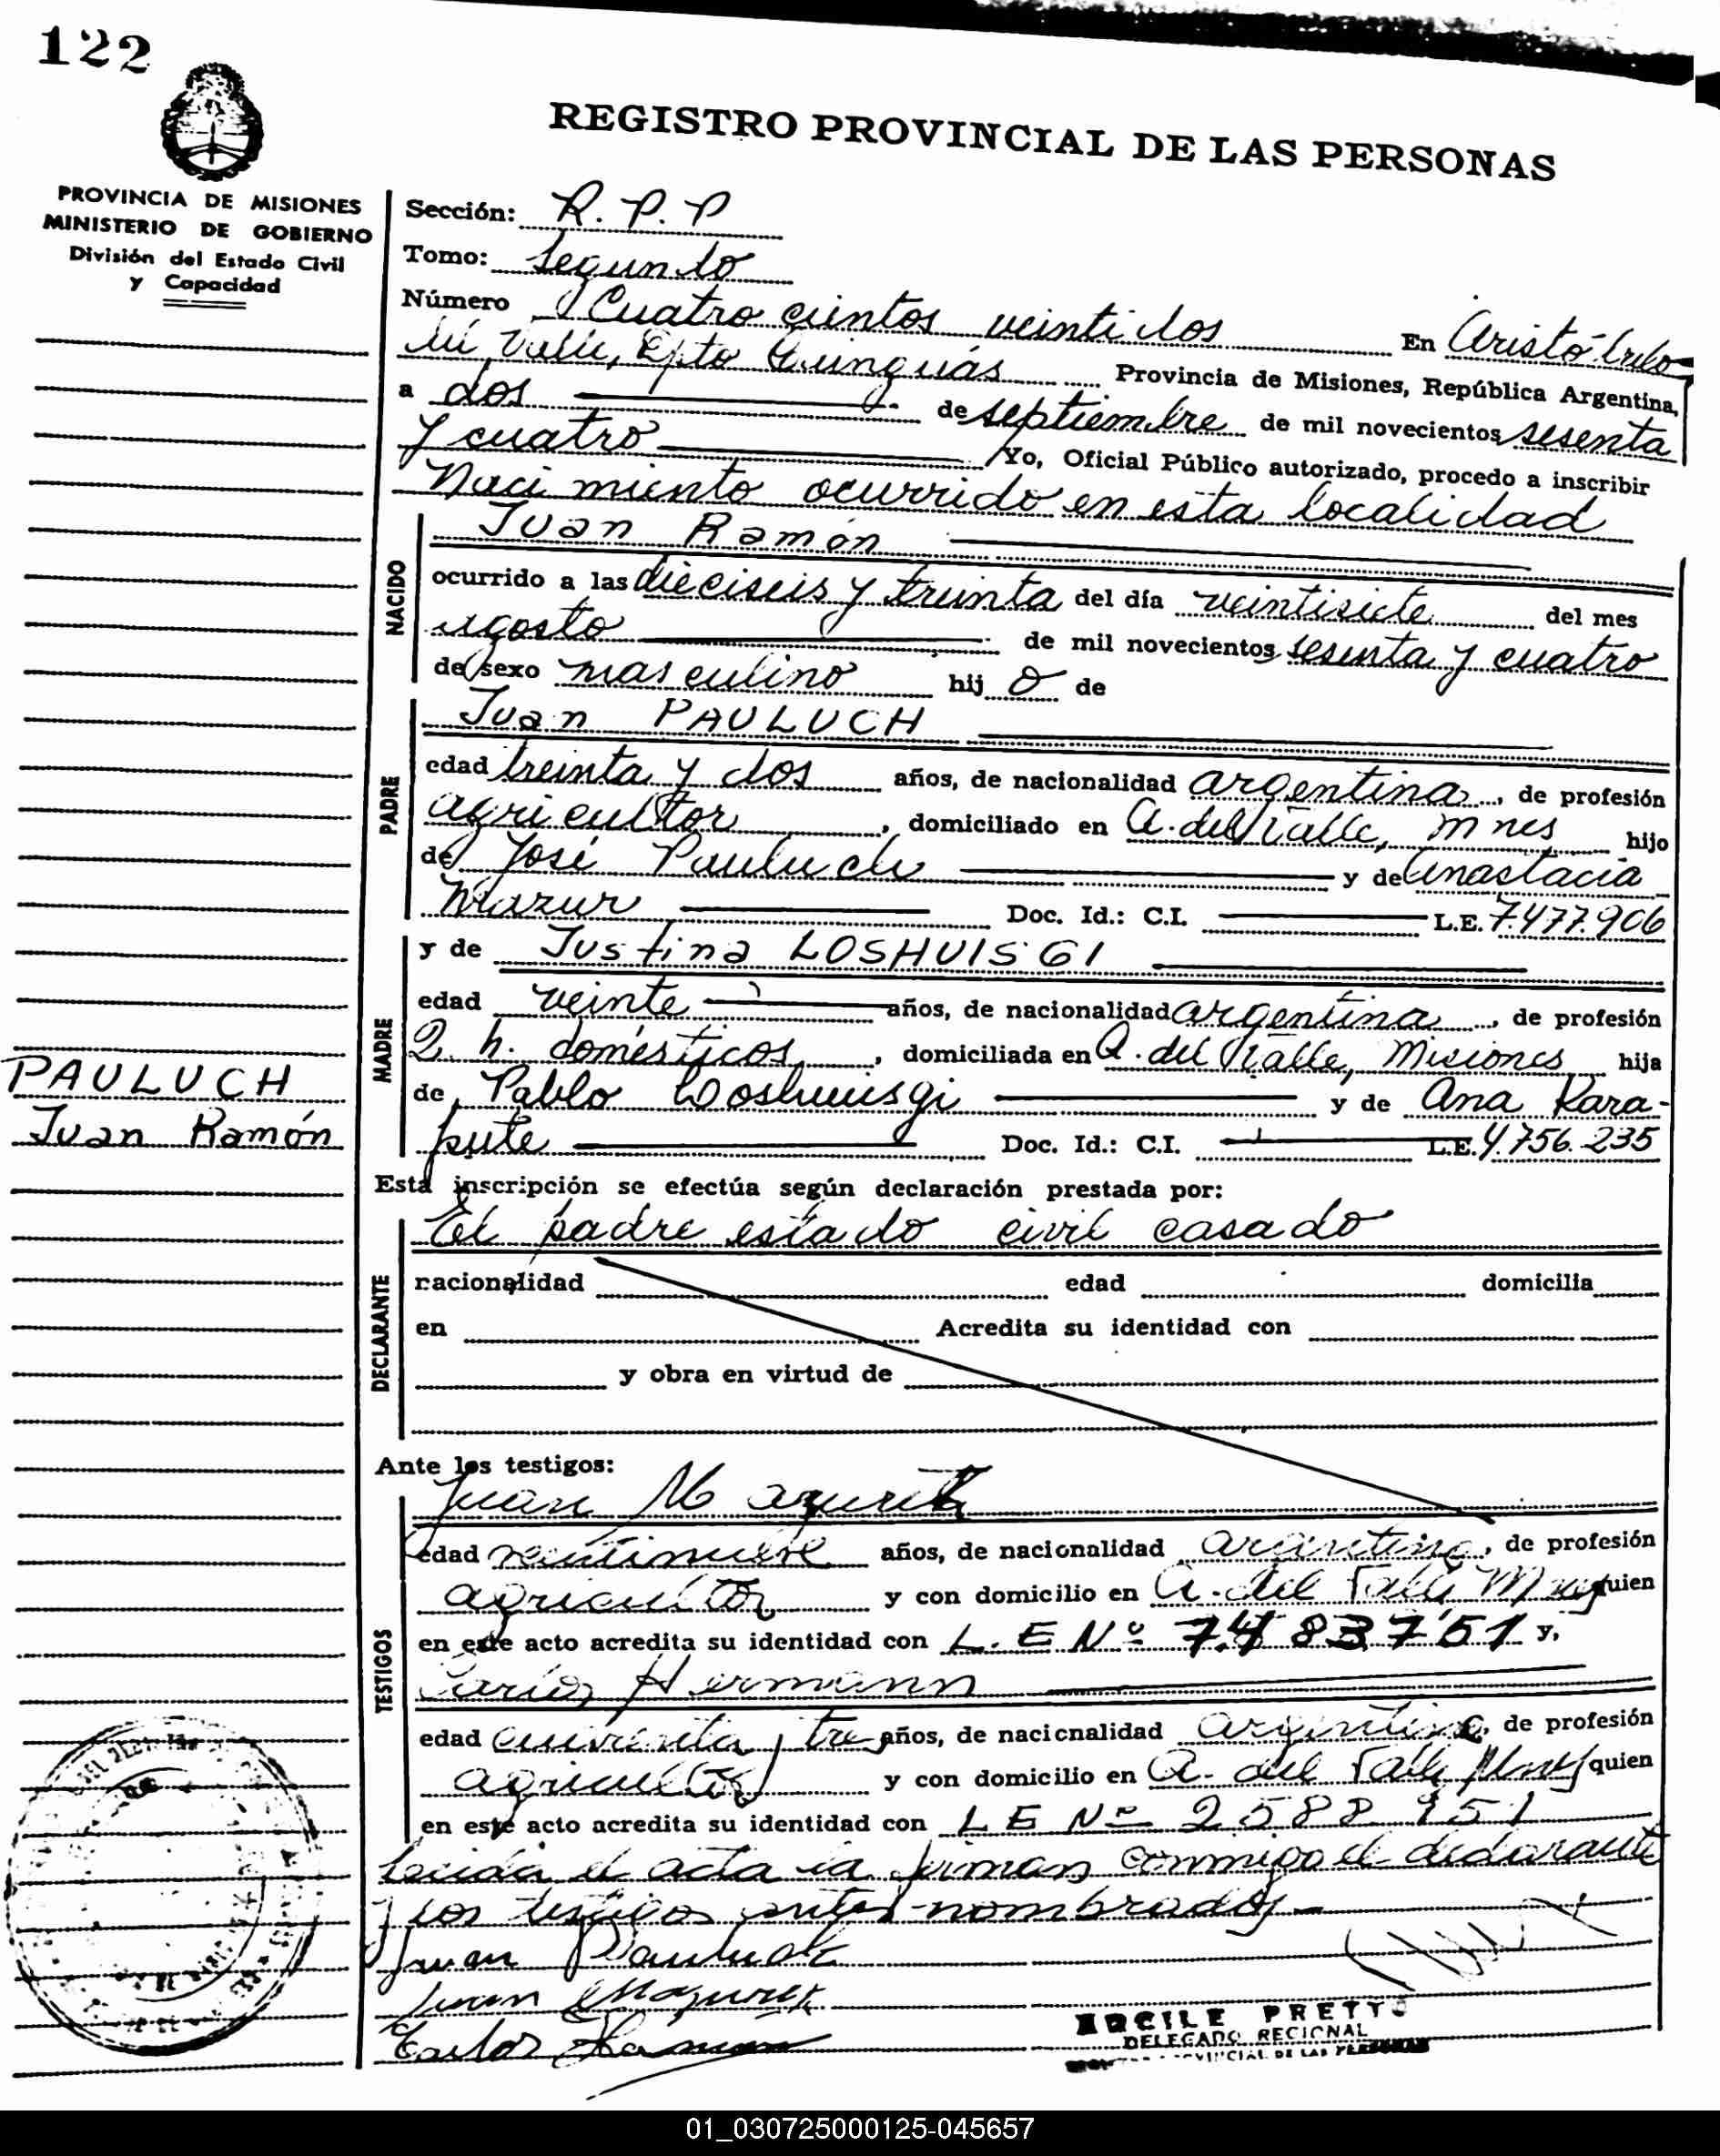 122
REGISTRO PROVINCIAL DE LAS PERSONAS
PROVINCIA DE MISIONES
MINISTERIO DE GOBIERNO
División del Estado Civil
y Capacidad
Sección: R. P. P
Tomo: Segundo
Número Cuatro cientos veinti dos En Aristóbulo
del Valle, Dpto Cainguás Provincia de Misiones, República Argentina,
a dos de septiembre de mil novecientos sesenta
y cuatro Yo, Oficial Público autorizado, procedo a inscribir
Naci miento ocurrido en esta localidad
NACIDO
Juan Ramón
ocurrido a las dieciseis y treinta del día veintisiete del mes
agosto de mil novecientos sesenta y cuatro
de sexo masculino hij o de
PADRE
Juan PAULUCH
edad treinta y dos años, de nacionalidad argentina, de profesión
agricultor, domiciliado en A. del Valle, Mnes hijo
de José Pauluch y de Anastacia
Mazur Doc. Id.: C.I. L.E. 7.477.906
MADRE
y de Justina LOSHUISGI
edad veinte años, de nacionalidad argentina, de profesión
Q. h. domésticos, domiciliada en A. del Valle, Misiones hija
de Pablo Loshuisgi y de Ana Kara-
pute Doc. Id.: C.I. L.E. 4.756.235
PAULUCH
Juan Ramón
Esta inscripción se efectúa según declaración prestada por:
DECLARANTE
El padre estado civil casado
nacionalidad edad domicilia
en Acredita su identidad con
y obra en virtud de
Ante los testigos:
TESTIGOS
Juan Mazurek
edad veintinueve años, de nacionalidad argentina, de profesión
agricultor y con domicilio en A. del Valle Mnes quien
en este acto acredita su identidad con L. E Nº 7483751 y,
Carlos Hermann
edad cuarenta y tres años, de nacionalidad argentina, de profesión
agricultor y con domicilio en A. del Valle Mnes quien
en este acto acredita su identidad con L E Nº 2588951
Leída el acta la firman conmigo el declarante
y los testigos antes nombrados
Juan Pauluch
Juan Mazurek
Carlos
ERCILE PRETTO
DELEGADO REGIONAL
PROVINCIAL DE LAS PERSONAS
01_030725000125-045657